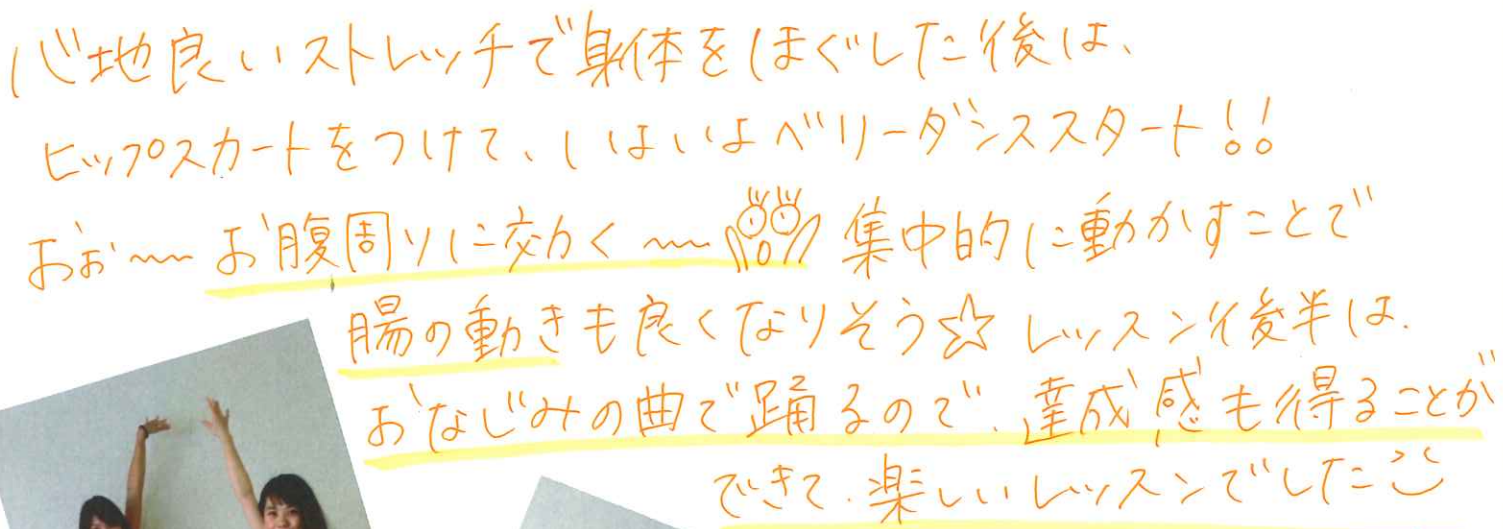 心地良いストレッチで身体をほぐした後は、
ヒップスカートをつけて、いよいよベリーダンススタート!!
おぉ〜〜お腹周りに効く〜〜 集中的に動かすことで
腸の動きも良くなりそう☆ レッスン後半は、
おなじみの曲で踊るので、達成感も得ることが
できて、楽しいレッスンでした